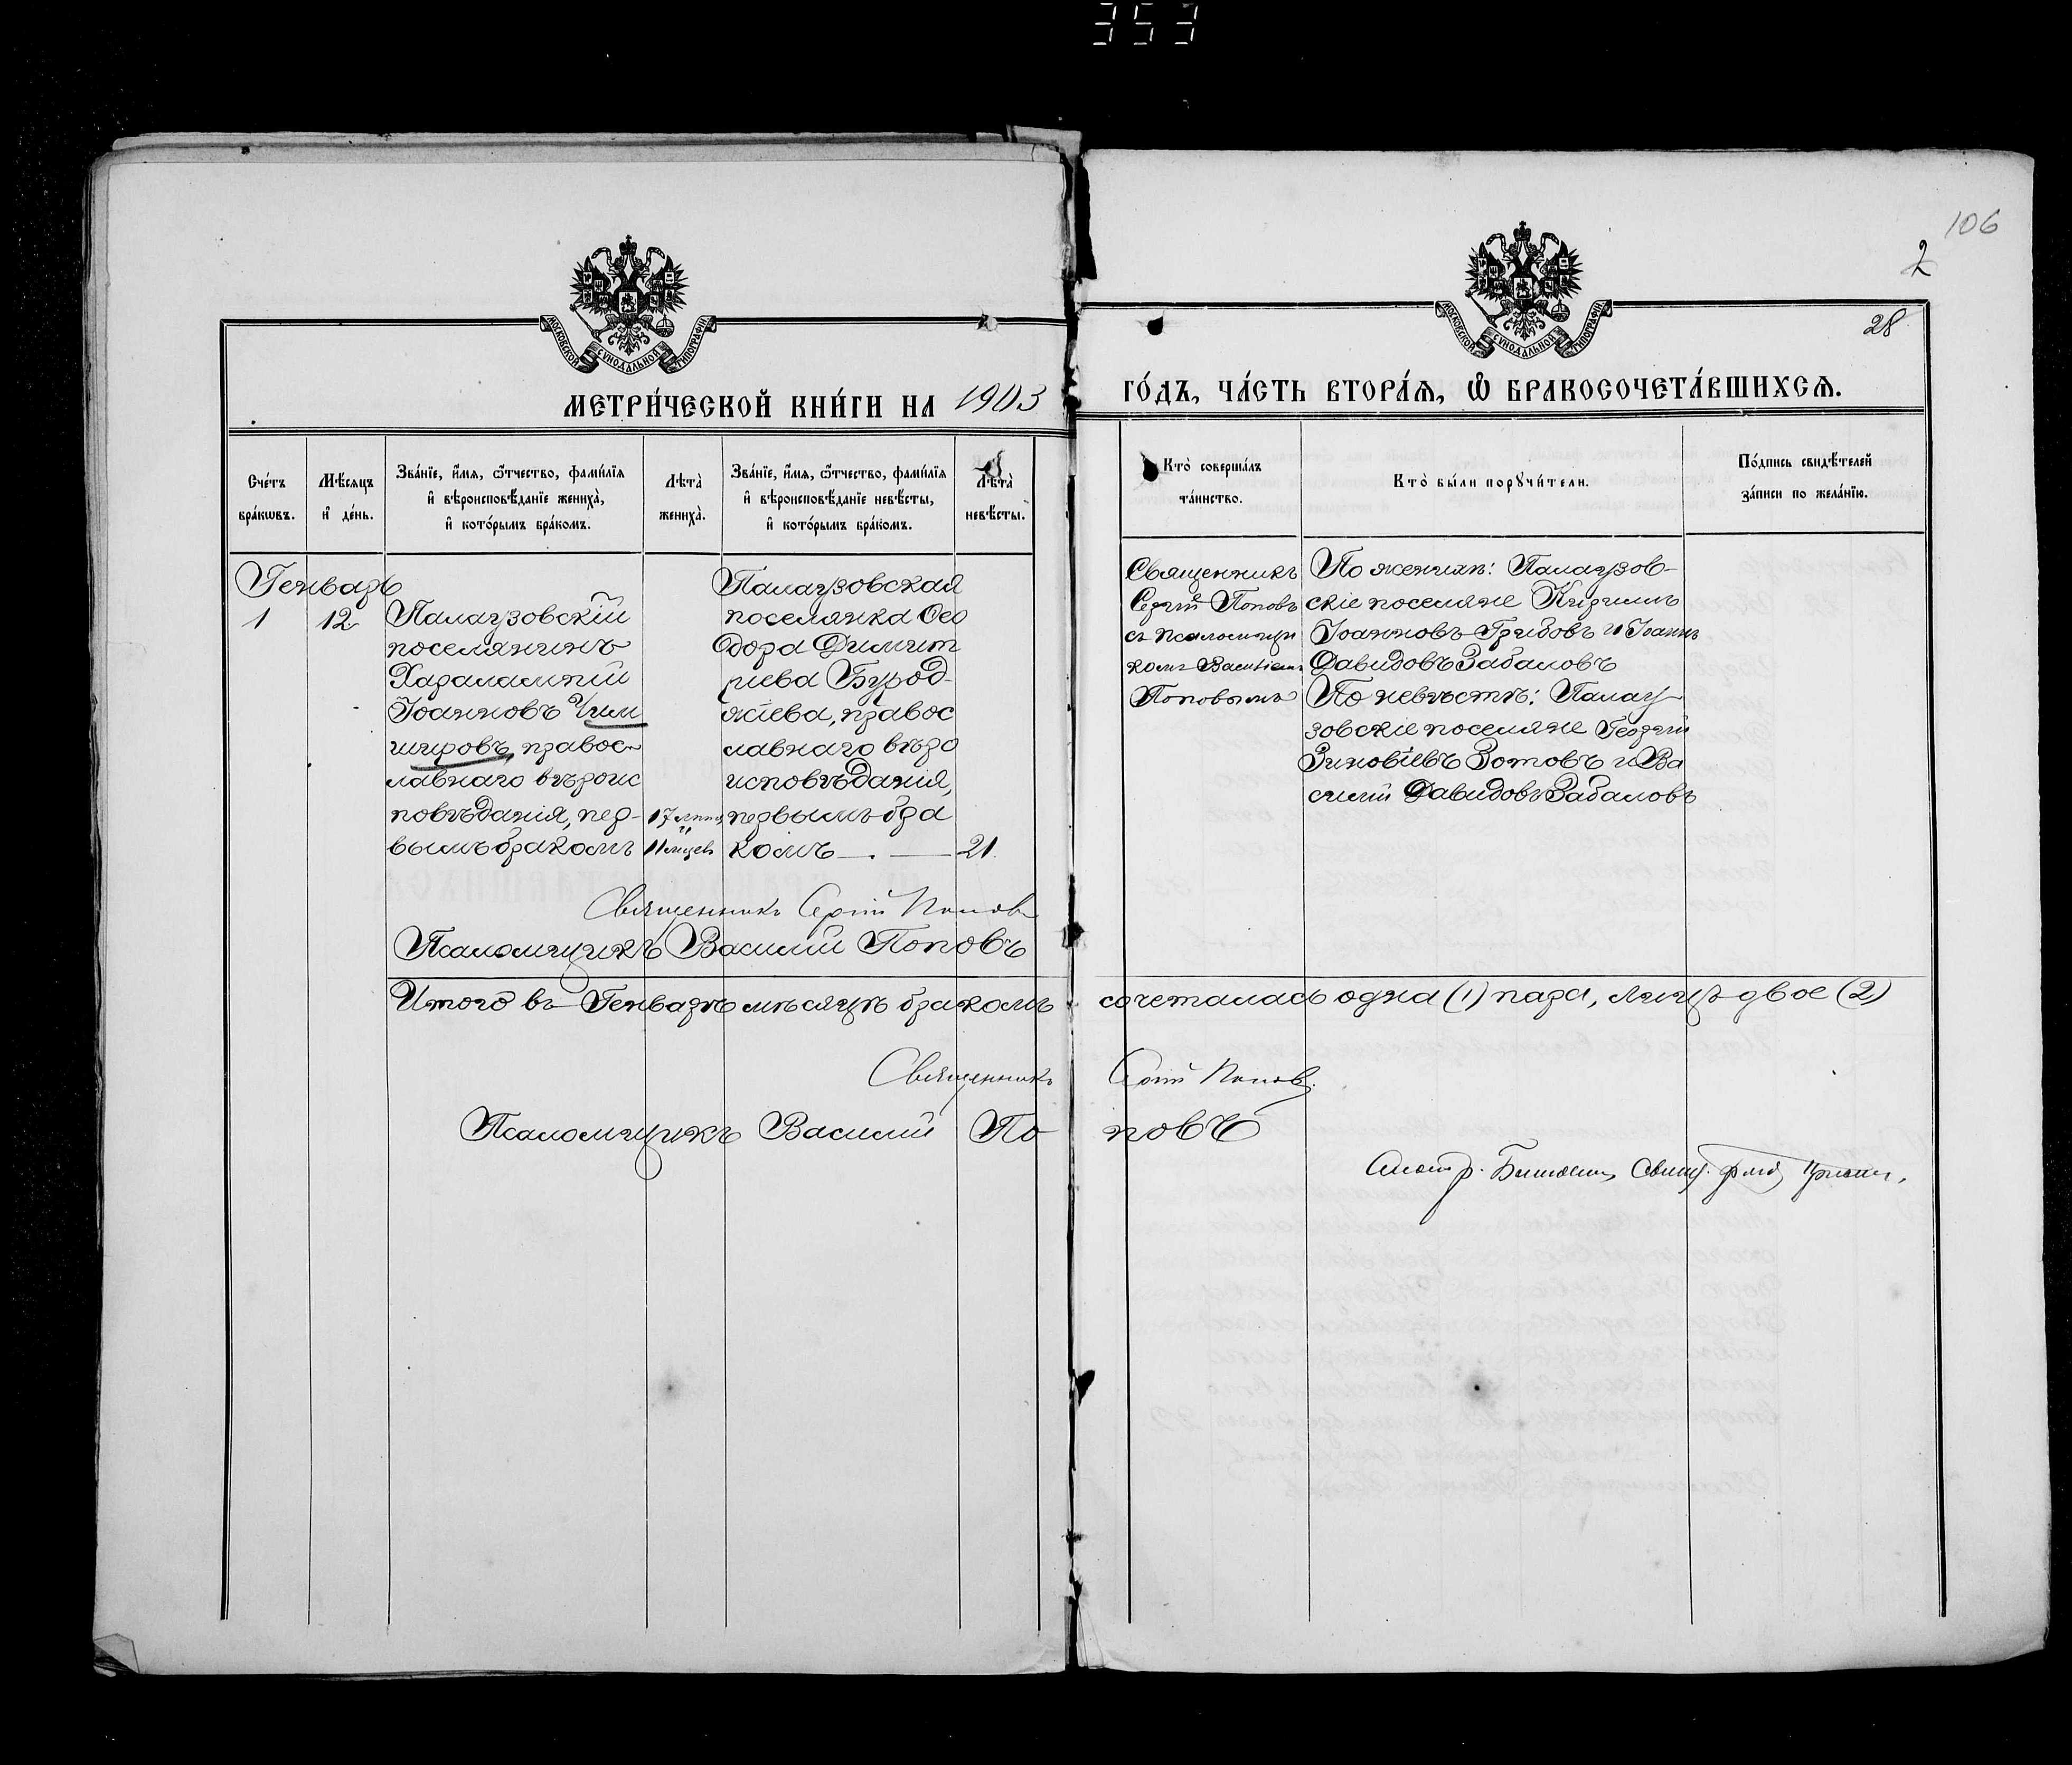 353
106
2
28
МОСКОВСКОЙ СѴНОДАЛЬНОЙ ТИПОГРАФІИ
МОСКОВСКОЙ СѴНОДАЛЬНОЙ ТИПОГРАФІИ
МЕТРИ́ЧЕСКОЙ КНИ́ГИ НА 1903
ГО́ДЪ, ЧА́СТЬ ВТОРА́Ѧ, Ѽ БРАКОСОЧЕТА́ВШИХСѦ.
Сче́тъ
бра́кѡвъ.
Мѣ́сѧцъ
и҆ де́нь.
Зва́нїе, и҆́мѧ, ѻ҆́тчество, фами́лїѧ
и҆ вѣроисповѣ́данїе жениха̀,
и҆ кото́рымъ бра́комъ.
Лѣ́та̀
жениха̀.
Зва́нїе, и҆́мѧ, ѻ҆́тчество, фами́лїѧ
и҆ вѣроисповѣ́данїе невѣ́сты,
и҆ кото́рымъ бра́комъ.
Лѣ́та̀
невѣ́сты.
Кто̀ соверша́лъ
та́инство.
Кто̀ бы́ли порꙋчи́тели.
По́дпись свидѣ́телей
за́писи по жела́нїю.
Генварь
1
12
Палаузовскій
поселянинъ
Харалампій
Іоанновъ Чим
шировъ, правос-
лавнаго вѣроис
повѣданія, пер-
вымъ бракомъ
17 лѣтъ
и
11 мцев
Палаузовская
поселянка Ѳео
дора Димит
риева Бурод-
жіева, правос
лавнаго вѣро
исповѣданія,
первымъ бра
комъ — . —
21.
Священникъ
Сергій Поповъ
съ псаломщи
комъ Василіемъ
Поповымъ
По женихѣ: Палаузов-
скіе поселяне Киріиллъ
Іоанновъ Грибовъ и Іоаннъ
Давидовъ Забаловъ
По невѣстѣ: Палау-
зовскіе поселяне Георгій
Зиновіевъ Зотовъ и Ва
силій Давидовъ Забаловъ
Священникъ Сергій Поповъ
Псаломщикъ Василій Поповъ
Итого въ Генварѣ мѣсяцѣ бракомъ сочеталась одна (1) пара, лицъ двое (2)
Священникъ Сергій Поповъ.
Псаломщикъ Василій Поповъ